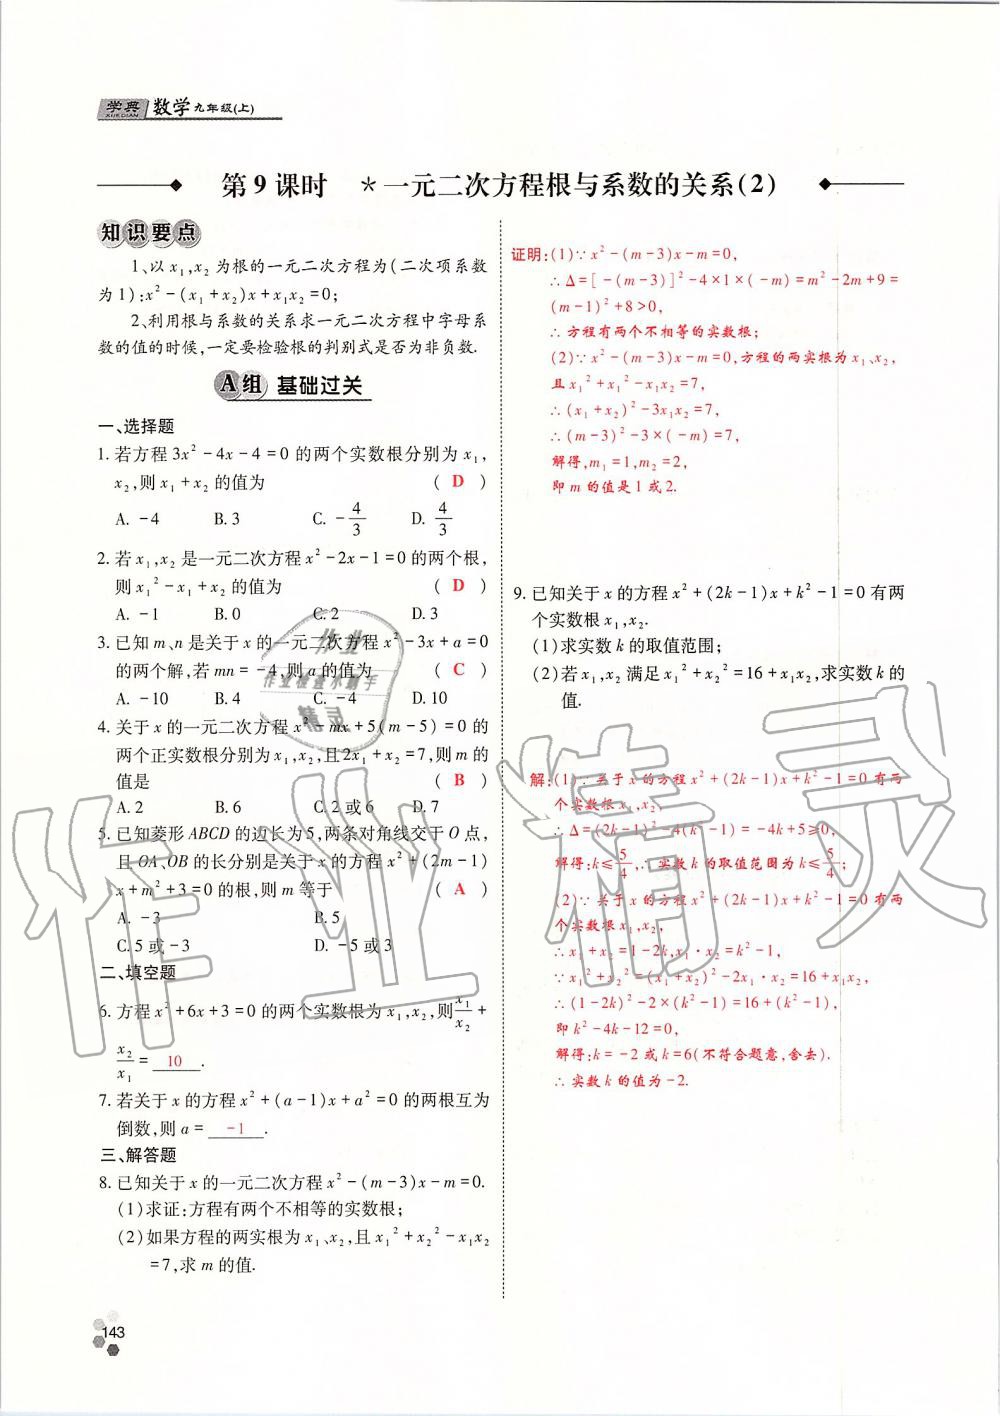 学典 数学九年级(上)
XUE DIAN
第9课时 *一元二次方程根与系数的关系(2)
知识要点
1、以x₁,x₂为根的一元二次方程为(二次项系数
为1):x²-(x₁+x₂)x+x₁x₂=0;
2、利用根与系数的关系求一元二次方程中字母系
数的值的时候,一定要检验根的判别式是否为非负数.
A组 基础过关
一、选择题
1. 若方程3x²-4x-4=0的两个实数根分别为x₁,
x₂,则x₁+x₂的值为 ( D )
A. -4 B. 3 C. -4/3 D. 4/3
2. 若x₁,x₂是一元二次方程x²-2x-1=0的两个根,
则x₁²-x₁+x₂的值为 ( D )
A. -1 B. 0 C. 2 D. 3
3. 已知m、n是关于x的一元二次方程x²-3x+a=0
的两个解,若mn=-4,则a的值为 ( C )
A. -10 B. 4 C. -4 D. 10
4. 关于x的一元二次方程x²-mx+5(m-5)=0的
两个正实数根分别为x₁,x₂,且2x₁+x₂=7,则m的
值是 ( B )
A. 2 B. 6 C. 2或6 D. 7
5. 已知菱形ABCD的边长为5,两条对角线交于O点,
且OA、OB的长分别是关于x的方程x²+(2m-1)
x+m²+3=0的根,则m等于 ( A )
A. -3 B. 5
C. 5或-3 D. -5或3
二、填空题
6. 方程x²+6x+3=0的两个实数根为x₁,x₂,则x₁/x₂+
x₂/x₁= 10 .
7. 若关于x的方程x²+(a-1)x+a²=0的两根互为
倒数,则a= -1 .
三、解答题
8. 已知关于x的一元二次方程x²-(m-3)x-m=0.
(1)求证:方程有两个不相等的实数根;
(2)如果方程的两实根为x₁、x₂,且x₁²+x₂²-x₁x₂
=7,求m的值.
143
证明:(1)∵x²-(m-3)x-m=0,
∴Δ=[-(m-3)]²-4×1×(-m)=m²-2m+9=
(m-1)²+8>0,
∴方程有两个不相等的实数根;
(2)∵x²-(m-3)x-m=0,方程的两实根为x₁、x₂,
且x₁²+x₁²-x₁x₂=7,
∴(x₁+x₂)²-3x₁x₂=7,
∴(m-3)²-3×(-m)=7,
解得,m₁=1,m₂=2,
即m的值是1或2.
9. 已知关于x的方程x²+(2k-1)x+k²-1=0有两
个实数根x₁,x₂.
(1)求实数k的取值范围;
(2)若x₁,x₂满足x₁²+x₂²=16+x₁x₂,求实数k的
值.
解:(1)∵关于x的方程x²+(2k-1)x+k²-1=0有两
个实数根x₁,x₂,
∴Δ=(2k-1)²-4(k²-1)=-4k+5≥0,
解得:k≤5/4,∴实数k的取值范围为k≤5/4;
(2)∵关于x的方程x²+(2k-1)x+k²-1=0有两
个实数根x₁,x₂,
∴x₁+x₂=1-2k,x₁·x₂=k²-1,
∵x₁²+x₂²=(x₁+x₂)²-2x₁·x₂=16+x₁x₂,
∴(1-2k)²-2×(k²-1)=16+(k²-1),
即k²-4k-12=0,
解得:k=-2或k=6(不符合题意,舍去).
∴实数k的值为-2.
作业精灵
作业
作业检查小助手
精灵